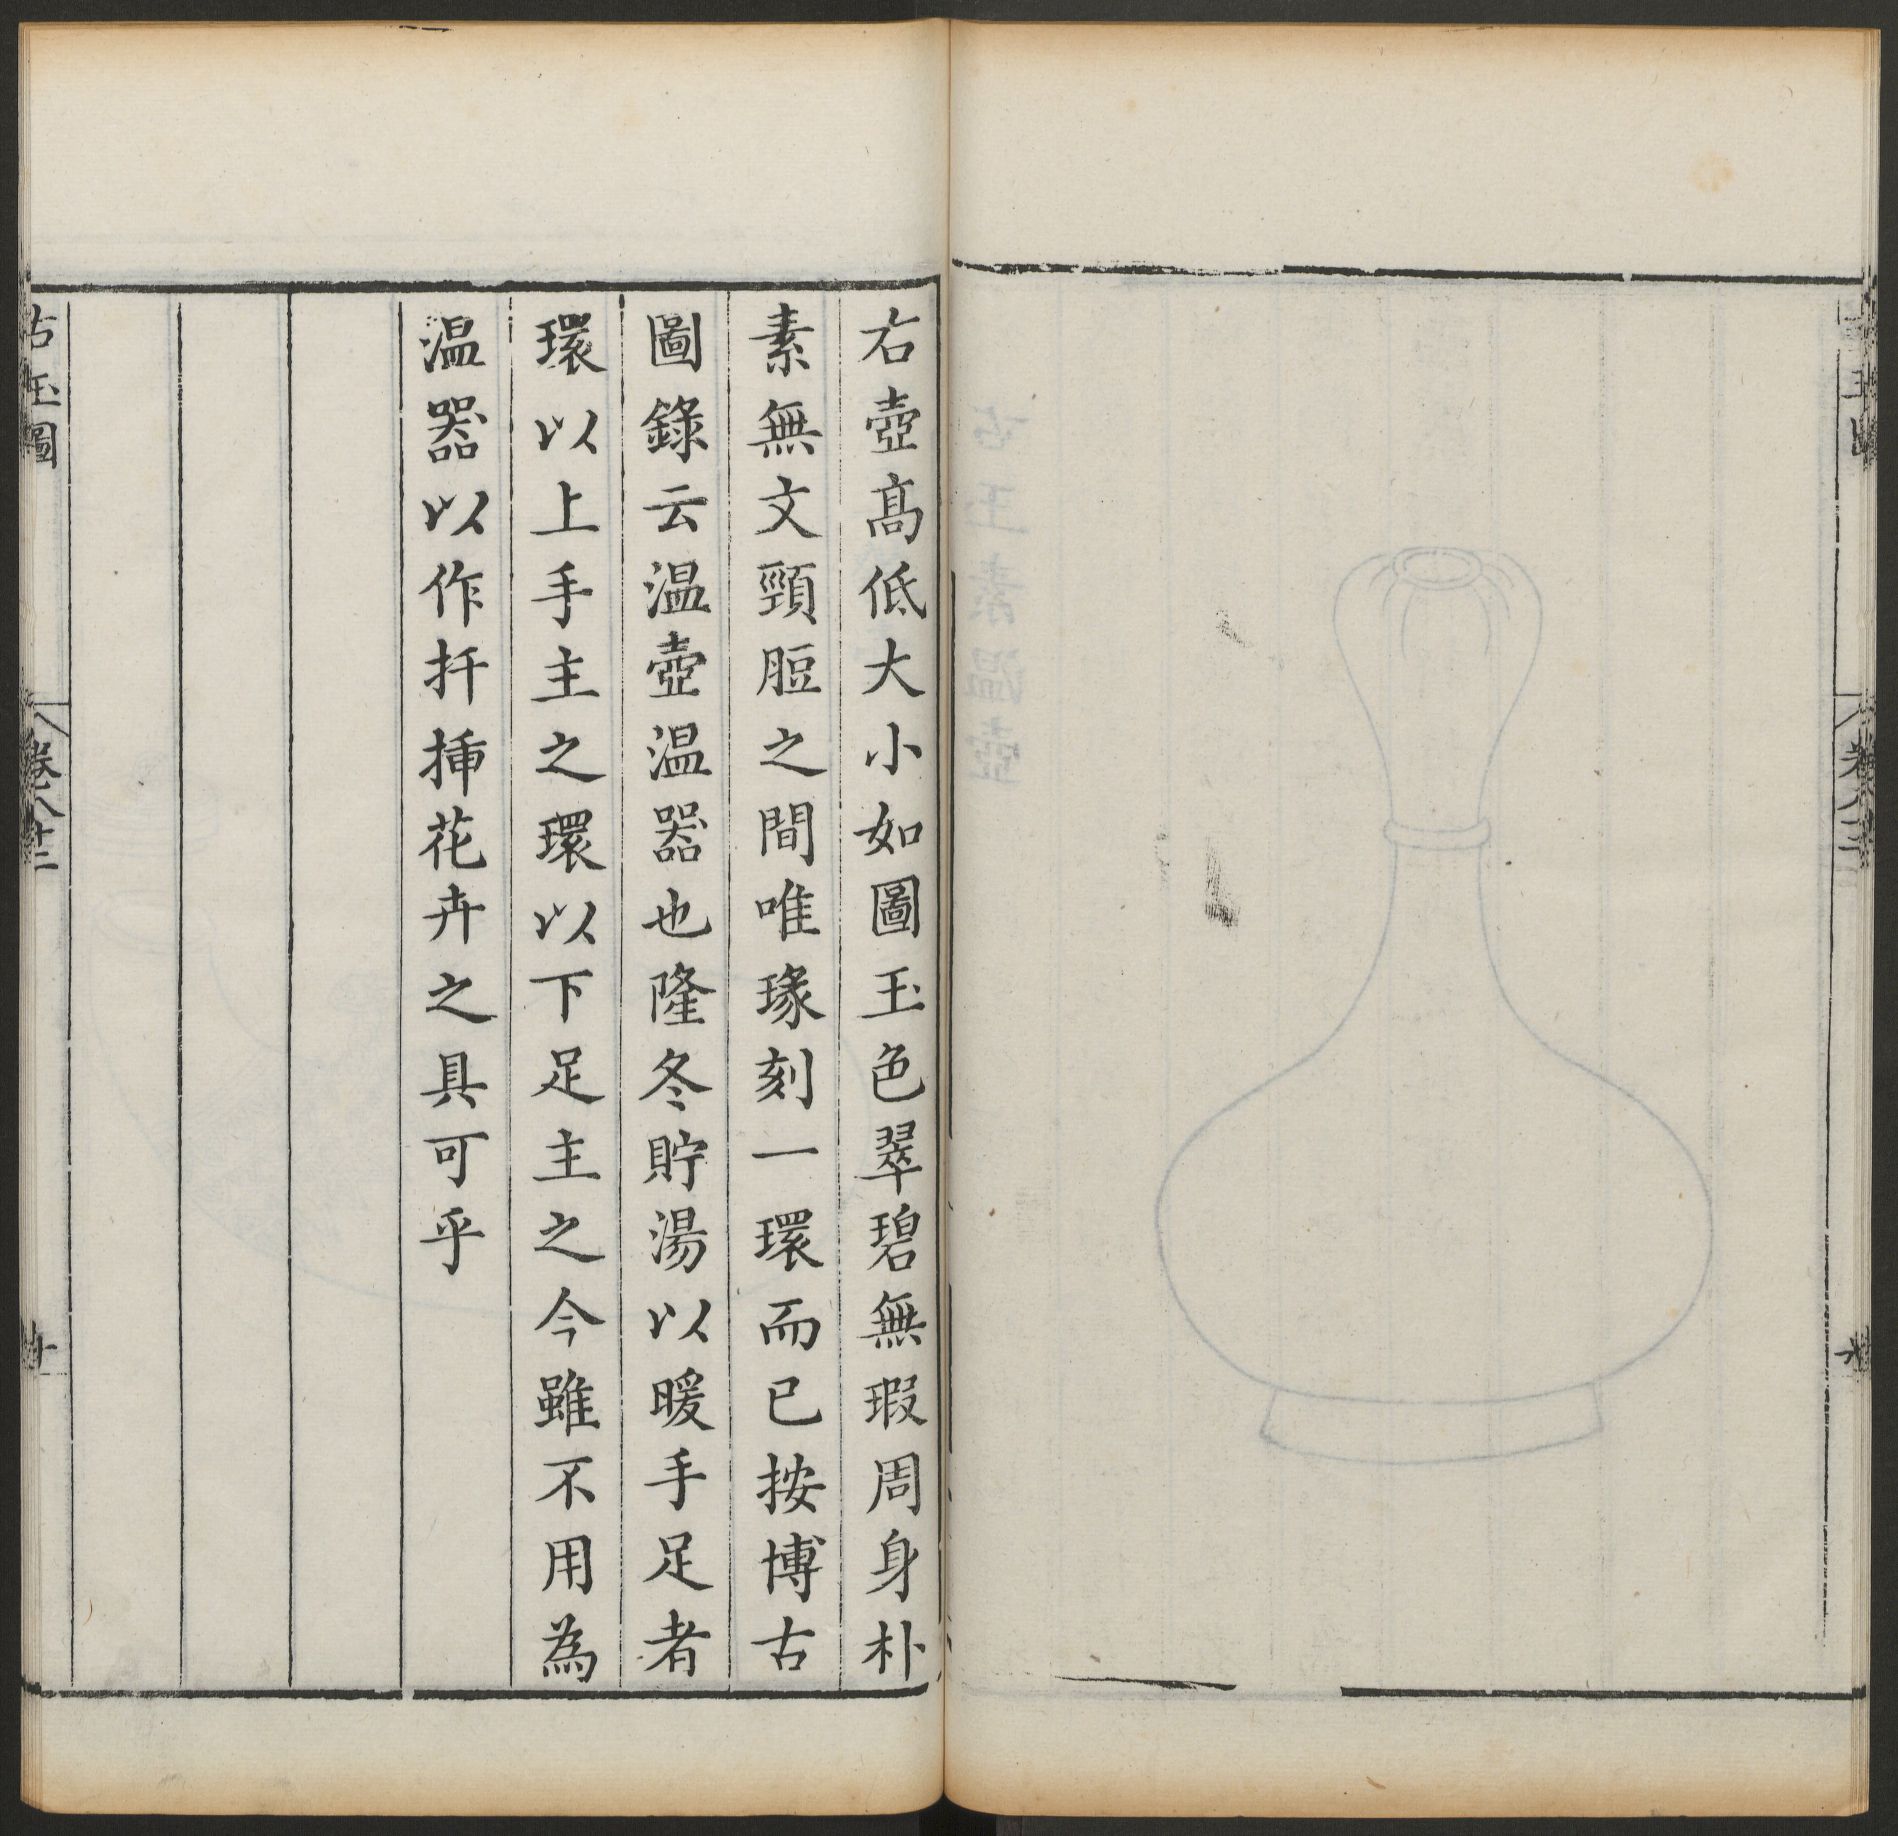 右壺高低大小如圖玉色翠碧無瑕周身朴
素無文頸脰之間唯瑑刻一環而已按博古
圖錄云温壺温器也隆冬貯湯以暖手足者
環以上手主之環以下足主之今雖不用為
温器以作扦揷花卉之具可乎
古玉圖
卷八十二